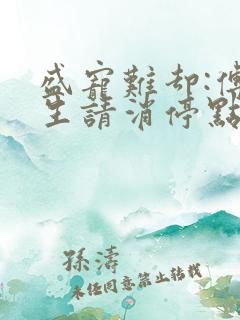 盛寵難却:傅
生請消停點
孫濤
未經同意禁止轉載